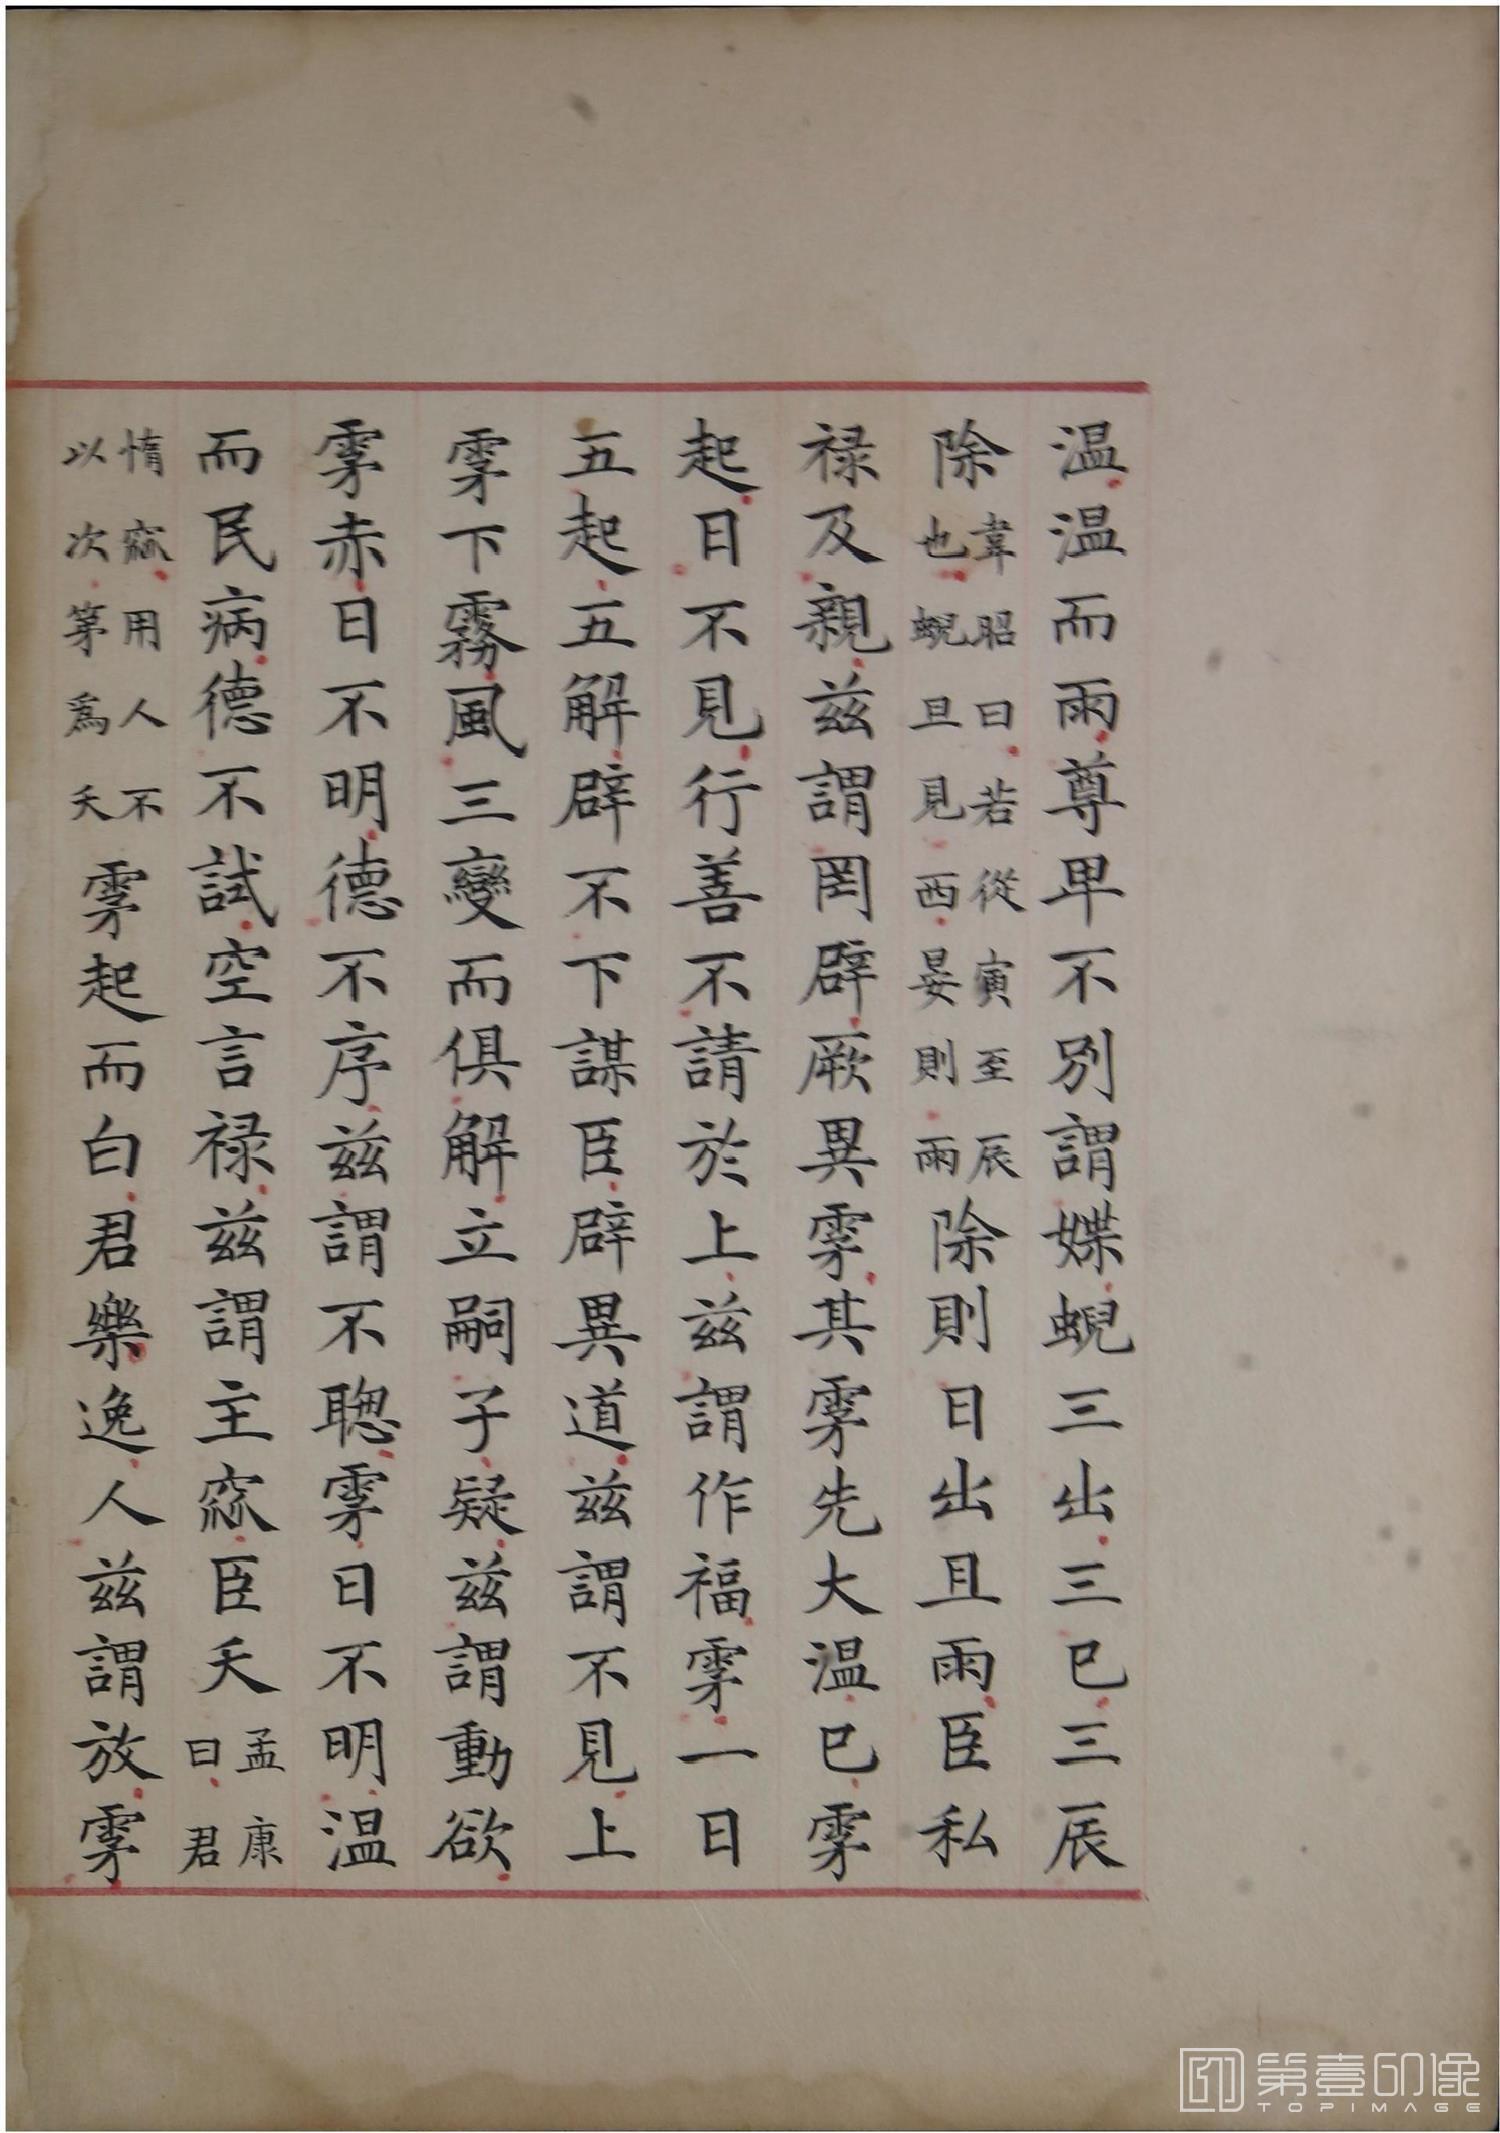 温温而雨尊卑不別謂媟蜺三出三巳三辰
除韋昭曰若從寅至辰也蜺旦見西晏則雨除則日出且雨臣私
禄及親兹謂罔辟厥異雺其雺先大温巳雺
起日不見行善不請於上兹謂作福雺一日
五起五解辟不下謀臣辟異道兹謂不見上
雺下霧風三變而俱解立嗣子疑兹謂動欲
雺赤日不明德不序兹謂不聦雺日不明温
而民病德不試空言禄兹謂主窳臣夭孟康曰君
惰窳用人不以次苐爲夭雺起而白君樂逸人兹謂放雺
第壹印像
TOPIMAGE